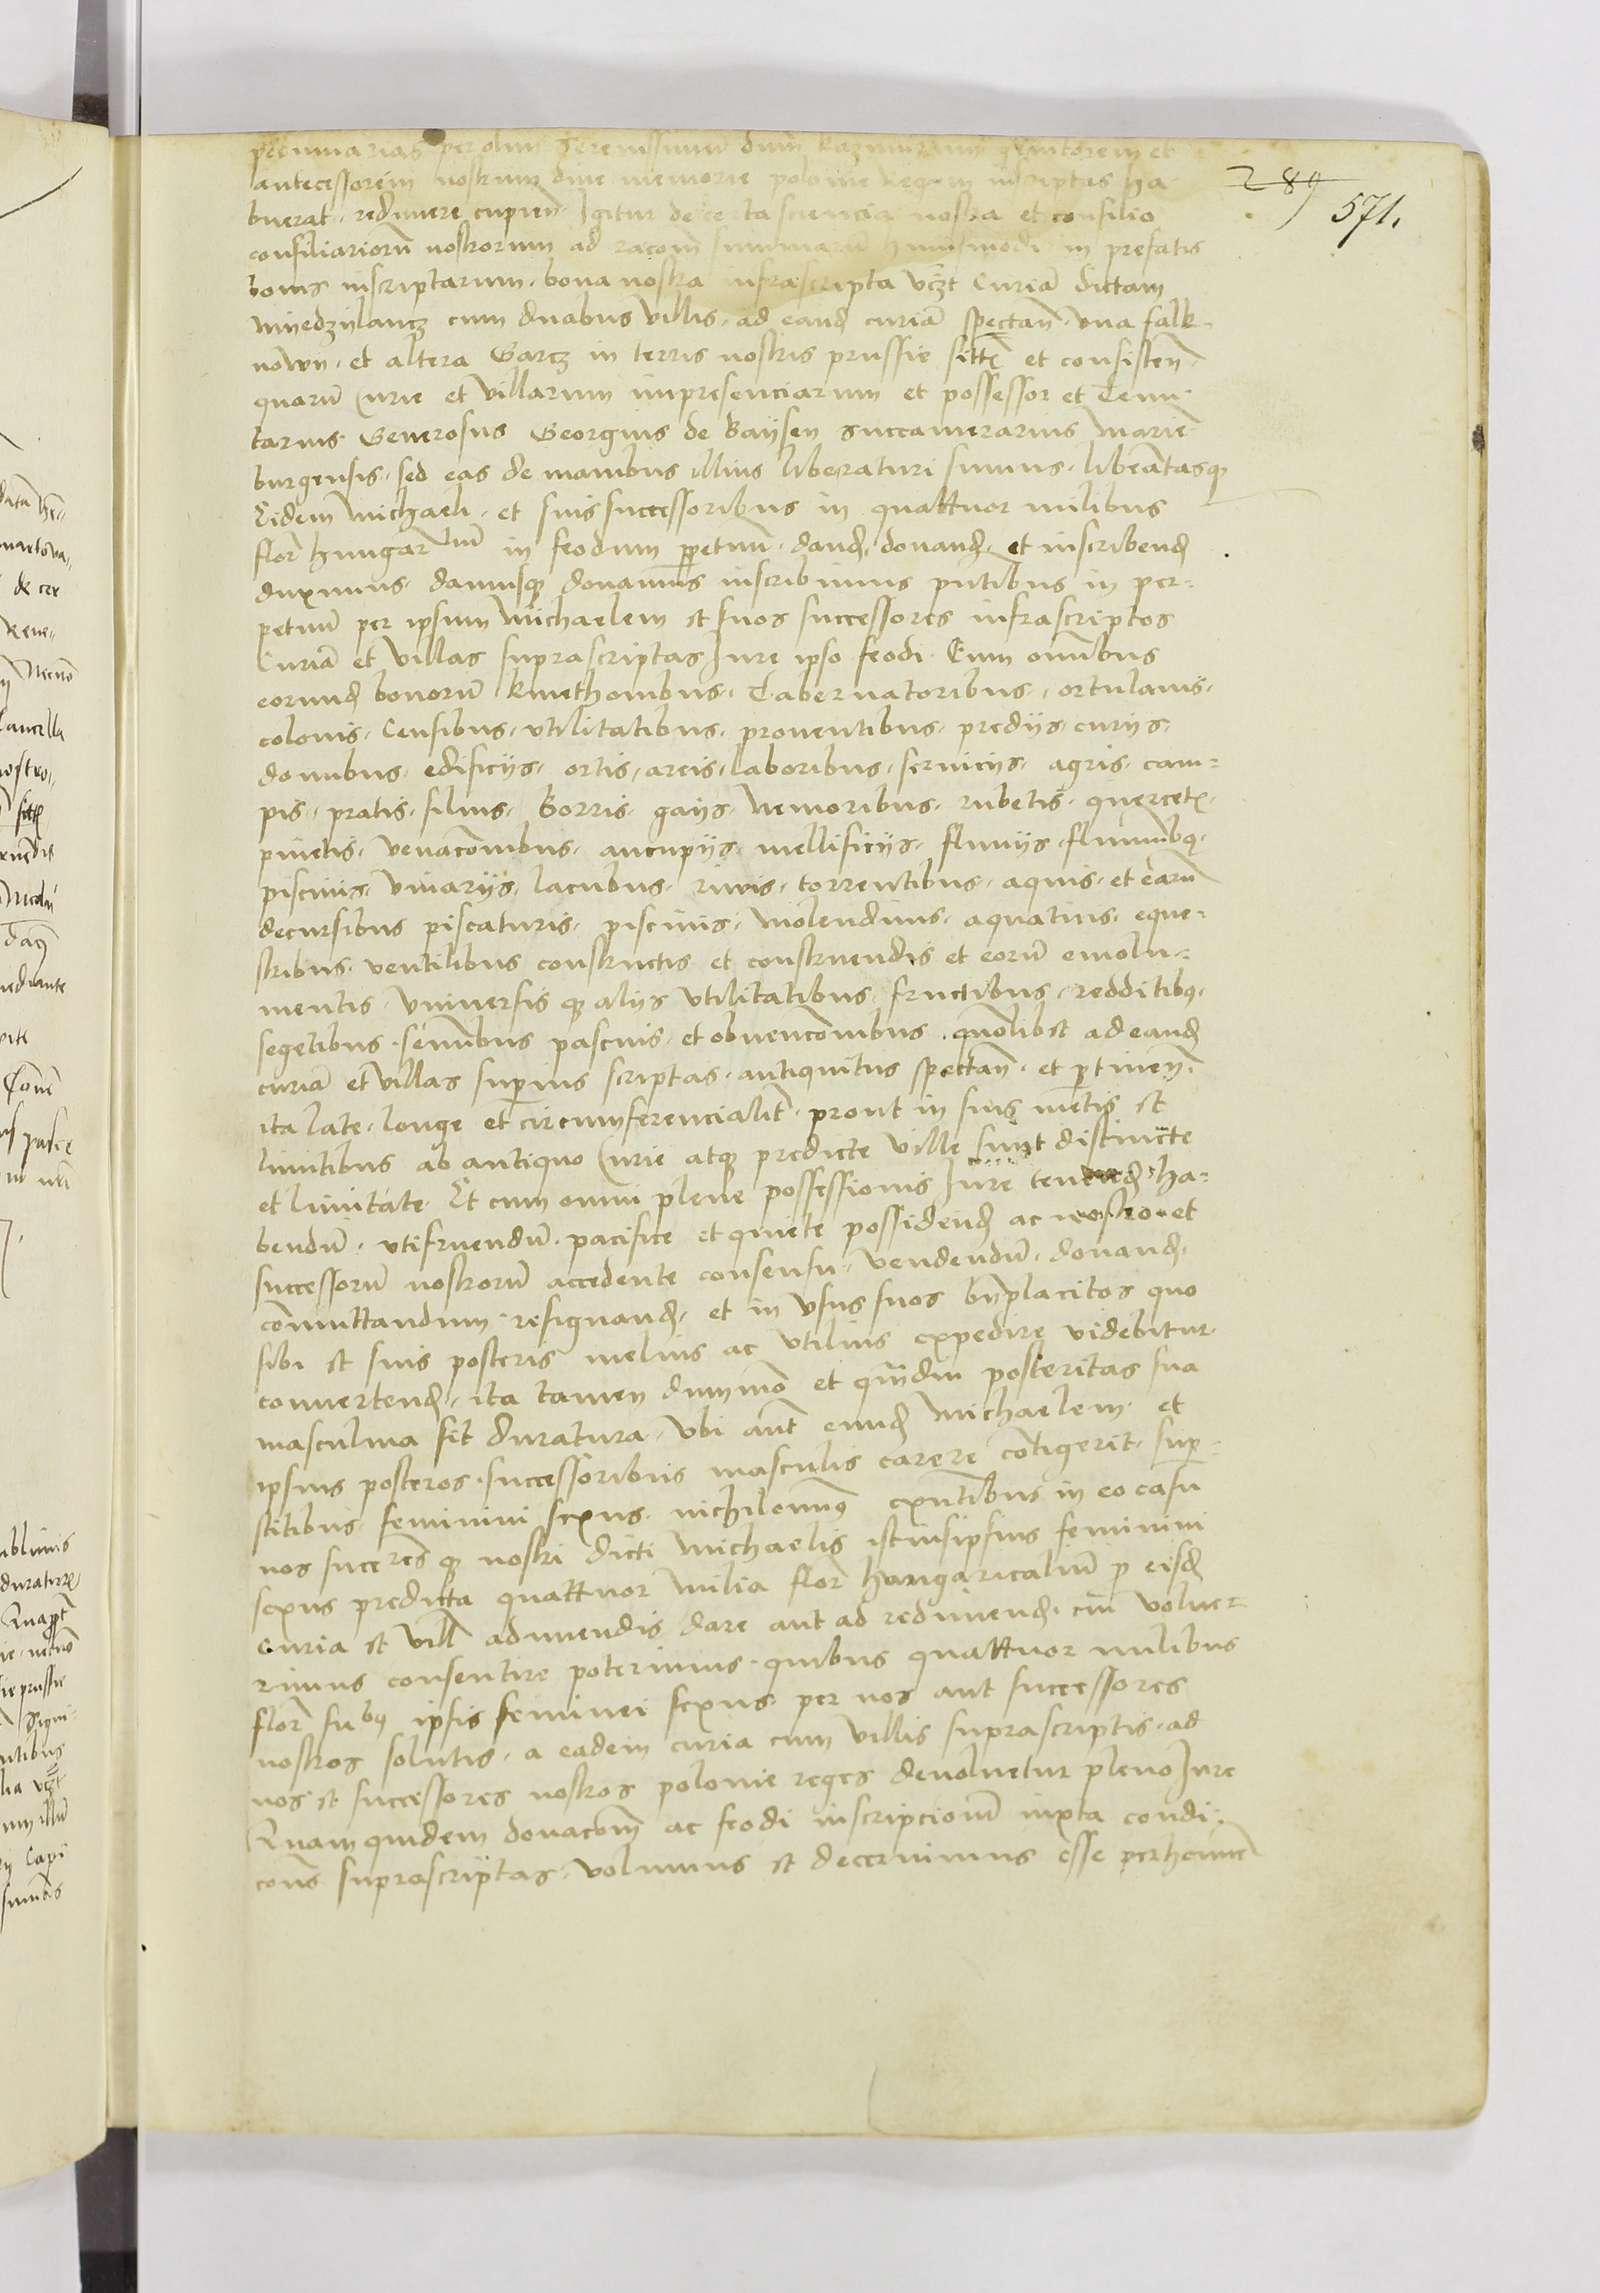 pecuniarias per olim Serenissimum dnm̄ Kazimirum genitorem et
antecessorem nostrum dive memorie polonie Regem inscriptas ha-
buerat. redimere cupien̄. Igitur de certa sciencia nostra et consilio
consiliariorū nostrorum ad racom̄ summarū huiusmodi in prefatis
bonis inscriptarum. bona nostra infrascripta vczt Curiā dictam
myedzylancz cum duabus villis. ad eand curiā spectan̄. una falk-
nown. et altera Garcz in terris nostris prussie sitte et consisten̄
quarū Curie et villarum impresenciarum et possessor et Tenu-
tarius Generosus Georgius de Baysen Succamerarius marien-
burgensis. sed eas de manibus illius liberaturi sumus. liberatasq
Eidem michaeli. et suis successoribus in quattuor milibus
flor̄ hungar liū in feodum ppetuū. dand. donand. et inscribend
duximus. damusq donamus inscribimus pn̄tibus in per-
petuū per ipsum michaelem et suos successores infrascriptos
Curiā et villas suprascriptas Jure ipso feodi. Cum om̄ibus
eorund bonorū kmethonibus. Tabernatoribus. ortulanis.
colonis. Censibus. vtilitatibus. proventibus. predijs. curijs.
domibus. edificijs. ortis. areis. laboribus. servicijs. agris. cam-
pis. pratis. silvis. Borris. gays. Nemoribus. rubetis. quercetis.
pinetis. venacōnibus. aucupijs. mellificijs. fluvijs. fluminibq.
piscinis. vivarijs. lacubus. rivis. torrentibus. aquis. et earū
decursibus piscaturis. piscinis. Molendinis. aquaticis. eque-
stribus. ventilibus constructis et construendis et eorū emolu-
mentis. Vniversis q alijs vtilitatibus. fructibus. redditibq.
segetibus. seminibus pascuis. et obvencōnibus. quolibet ad eand
curiā et villas superius scriptas. antiquitus spectan̄. et ptinen̄.
ita late. longe et circumferencialit̄. prout in suis metis et
limitibus ab antiquo Curie atq predicte ville sunt distincte
et limitate. Et cum omni plene possessionis Jure tenend ha-
bendū. vtifruendū. pacifice et quiete possidend ac nostro et
successorū nostrorū accedente consensu. vendendū. donand.
com̄uttandum. resignand. et in vsus suos bn̄placitos quo
sibi et suis posteris melius ac vtilius expedire videbitur.
convertend. ita tamen dummō et qm̄diu posteritas sua
masculina sit duratura. Vbi aut̄ eund michaelem et
ipsius posteros. successoribus masculis carere contigerit. super-
stitibus. feminini sexus. nichilominus exn̄tibus in eo casu
nos succres q nostri dicti michaelis istius ipsius feminini
sexus predicta quattuor milia flor̄ hungaricaliū p eisd
Curia et vill̄ adimendis dare aut ad redimend. cui volue-
rimus consentire poterimus. quibus quattuor milibus
flor̄ subq ipsis feminei sexus per nos aut successores
nostros solutis. a eadem curia cum villis suprascriptis. ad
nos et successores nostros polonie reges devolvetur pleno Jure
Quam quidem donacom̄ ac feodi inscripcionū iuxta condi-
cōns suprascriptas. volumus et decernimus esse perhenn̄
289
571.